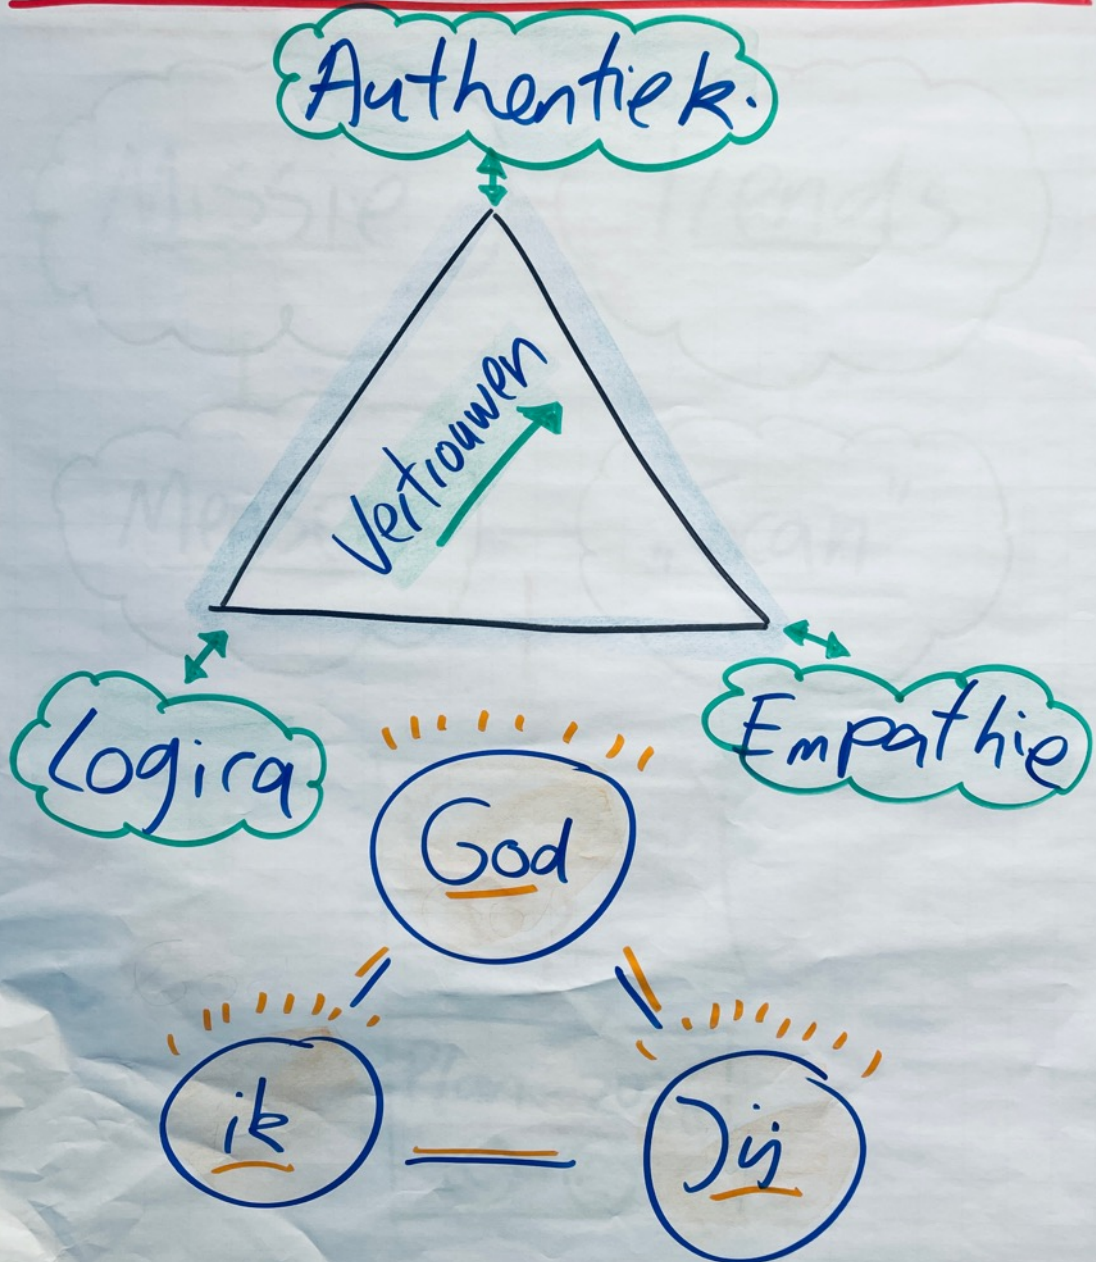 Authentiek.
Vertrouwen
Logica
Empathie
God
ik
Jij